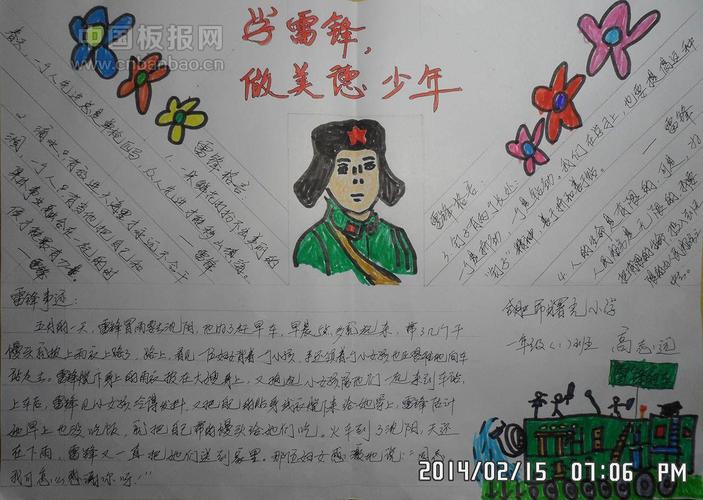 中国板报网
www.cnbanbao.cn
学雷锋，
做美德少年
雷锋格言：
一滴水只有放进大海里才永远不会干
一个人只有当他把自己和
集体事业融合在一起的时
候才能最有力量。
—雷锋
雷锋格言：
3、钉子有两个长处：
一个是挤劲，一个是钻劲。我们在学习上，也要提倡这种
"钉子"精神，善于挤和善于钻。
—雷锋
4、人的生命是有限的，可是，为
人民服务是无限的，
雷锋事迹：
五月的一天，雷锋冒雨要去沈阳，他为了赶早车，早晨5点多就起来，带了几个干
馒头就披上雨衣上路了，路上，看见一位妇女背着一个小孩，手还领着一个小女孩也正艰难地向车
站走去。雷锋脱下身上的雨衣披在大嫂身上，又抱起小女孩陪他们一起来到车站，
上车后，雷锋见小女孩冷得发抖，又把自己的贴身线衣脱下来给她穿上，雷锋估计
她早上也没吃饭，就把自己带的馒头给她们吃。火车到了沈阳，天还
在下雨，雷锋又一直把她们送到家里。那位妇女感激地说："同志
我可怎么感谢你呀！"
曙光小学
一年级（1）班 高志远
2014/02/15 07:06 PM